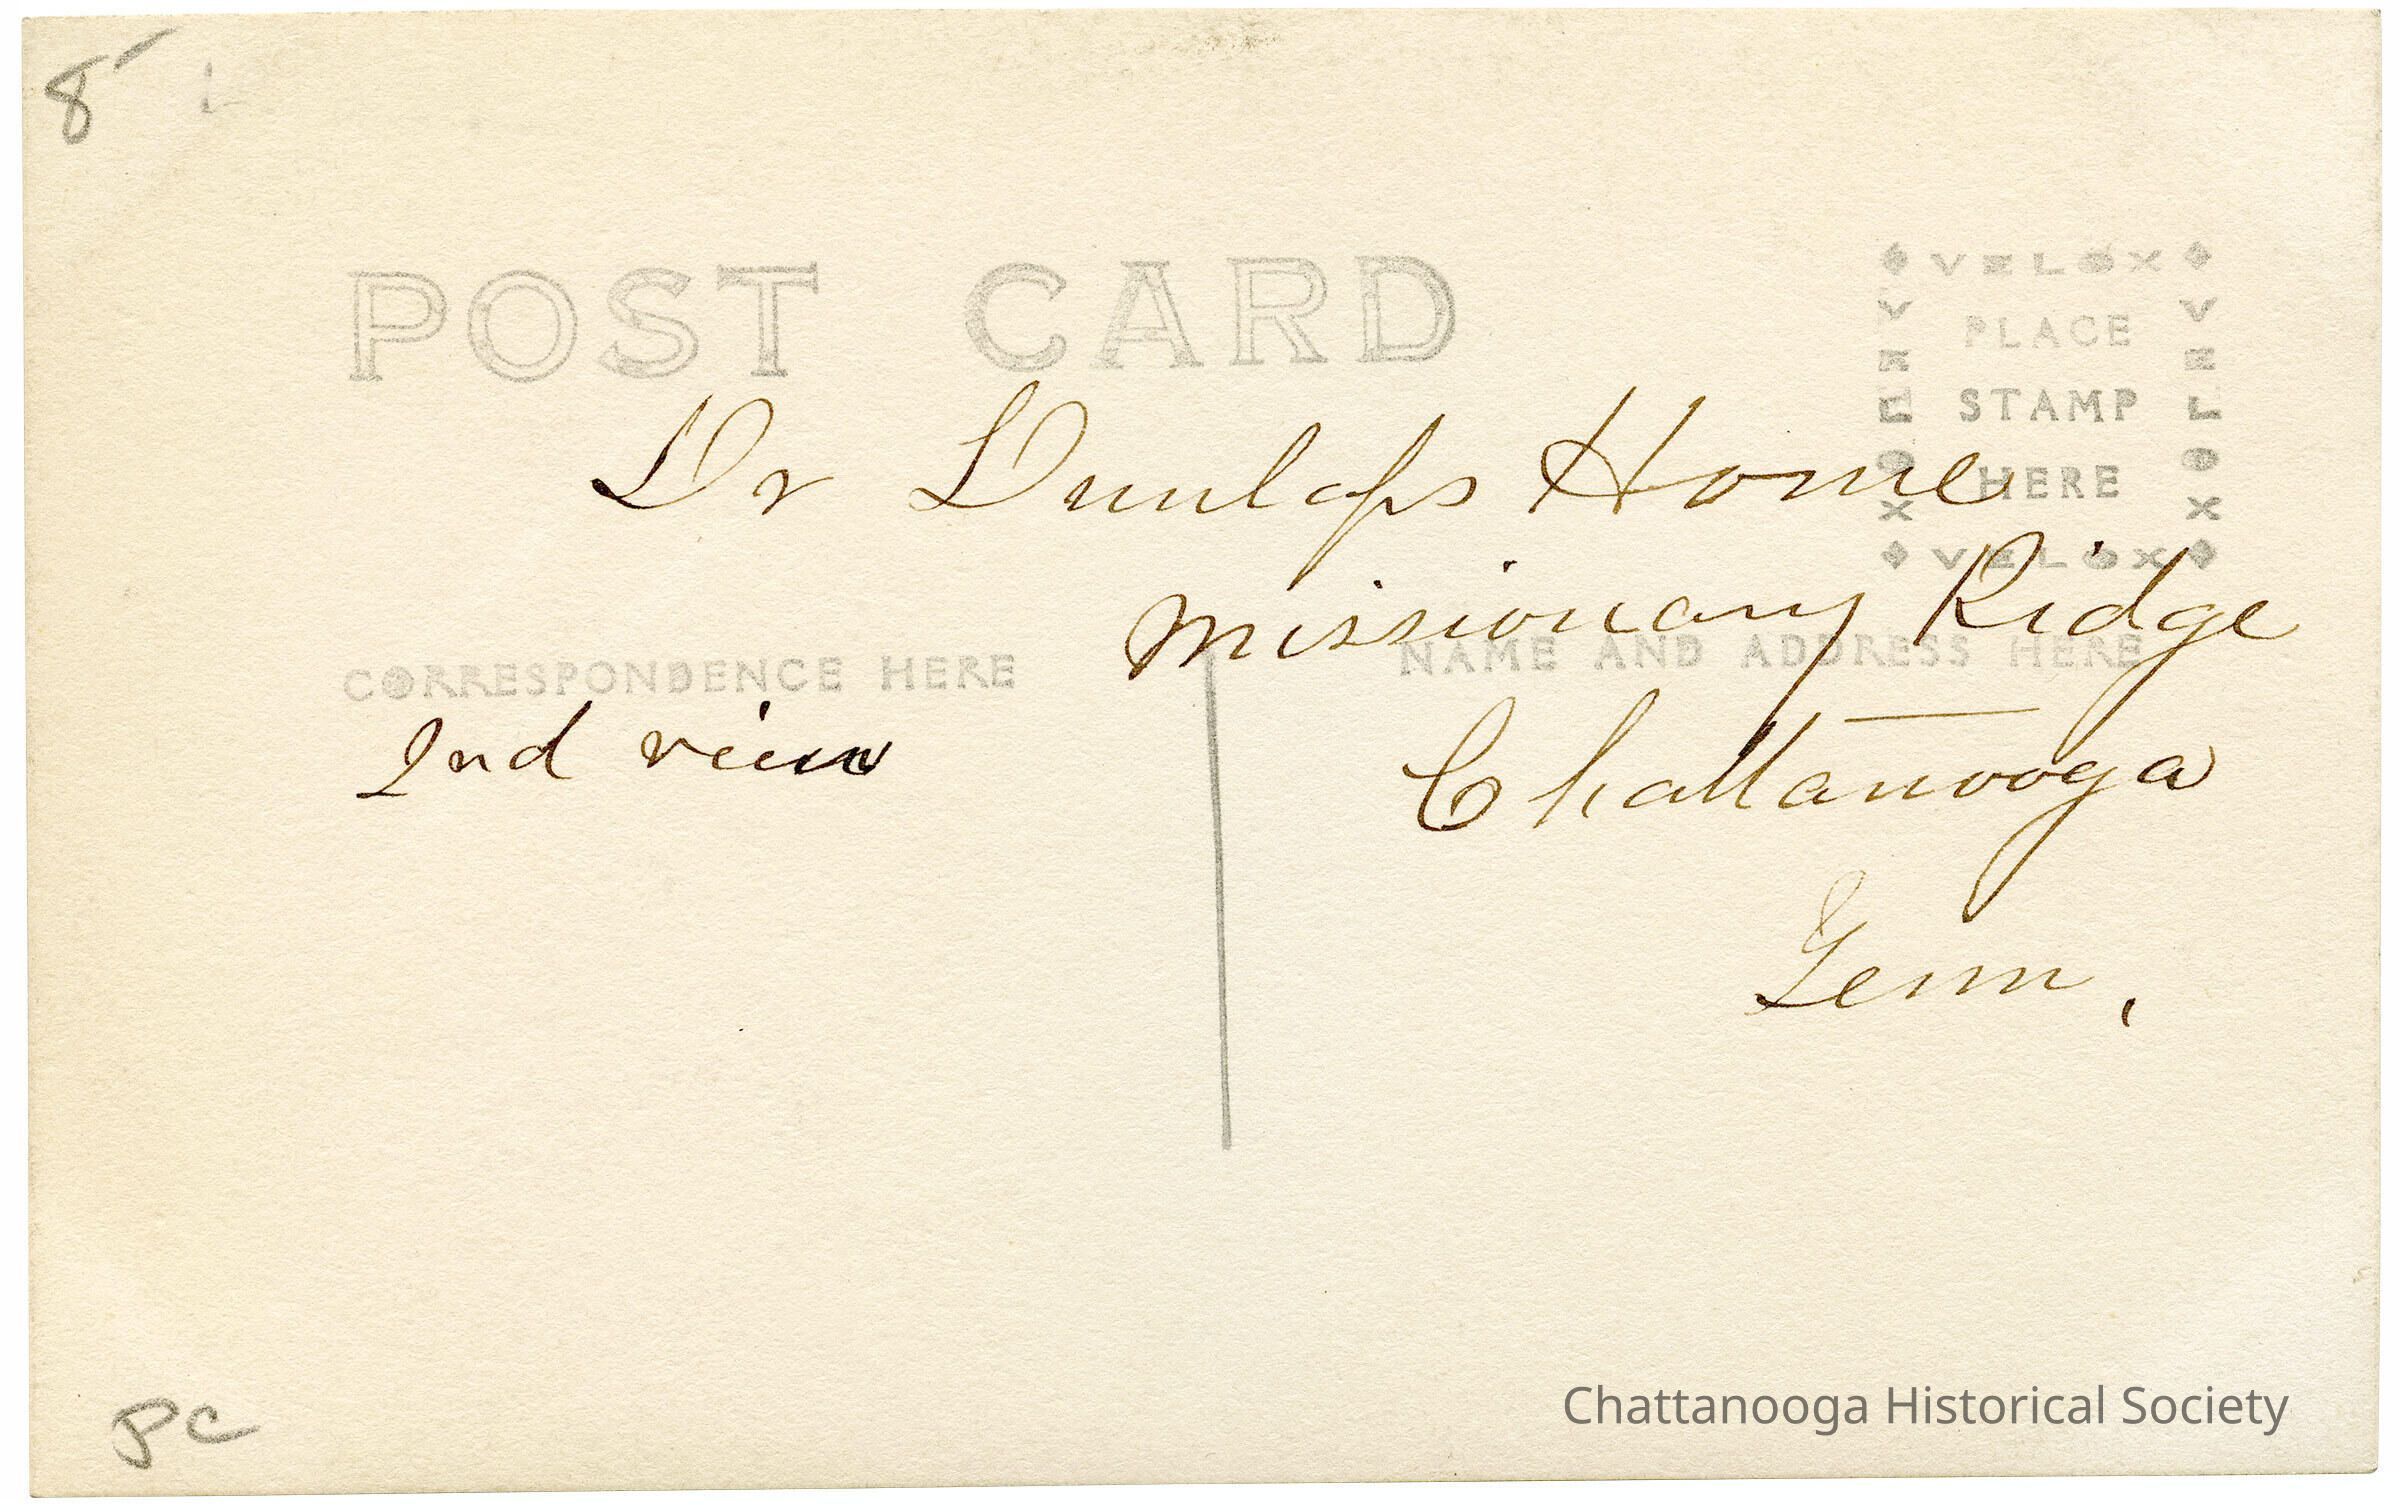 8
POST CARD
VELOX
PLACE
STAMP
HERE
VELOX
VELOX
VELOX
Dr Dunlaps Home
Missionary Ridge
CORRESPONDENCE HERE
NAME AND ADDRESS HERE
2nd view
Chattanooga
Tenn.
PC
Chattanooga Historical Society